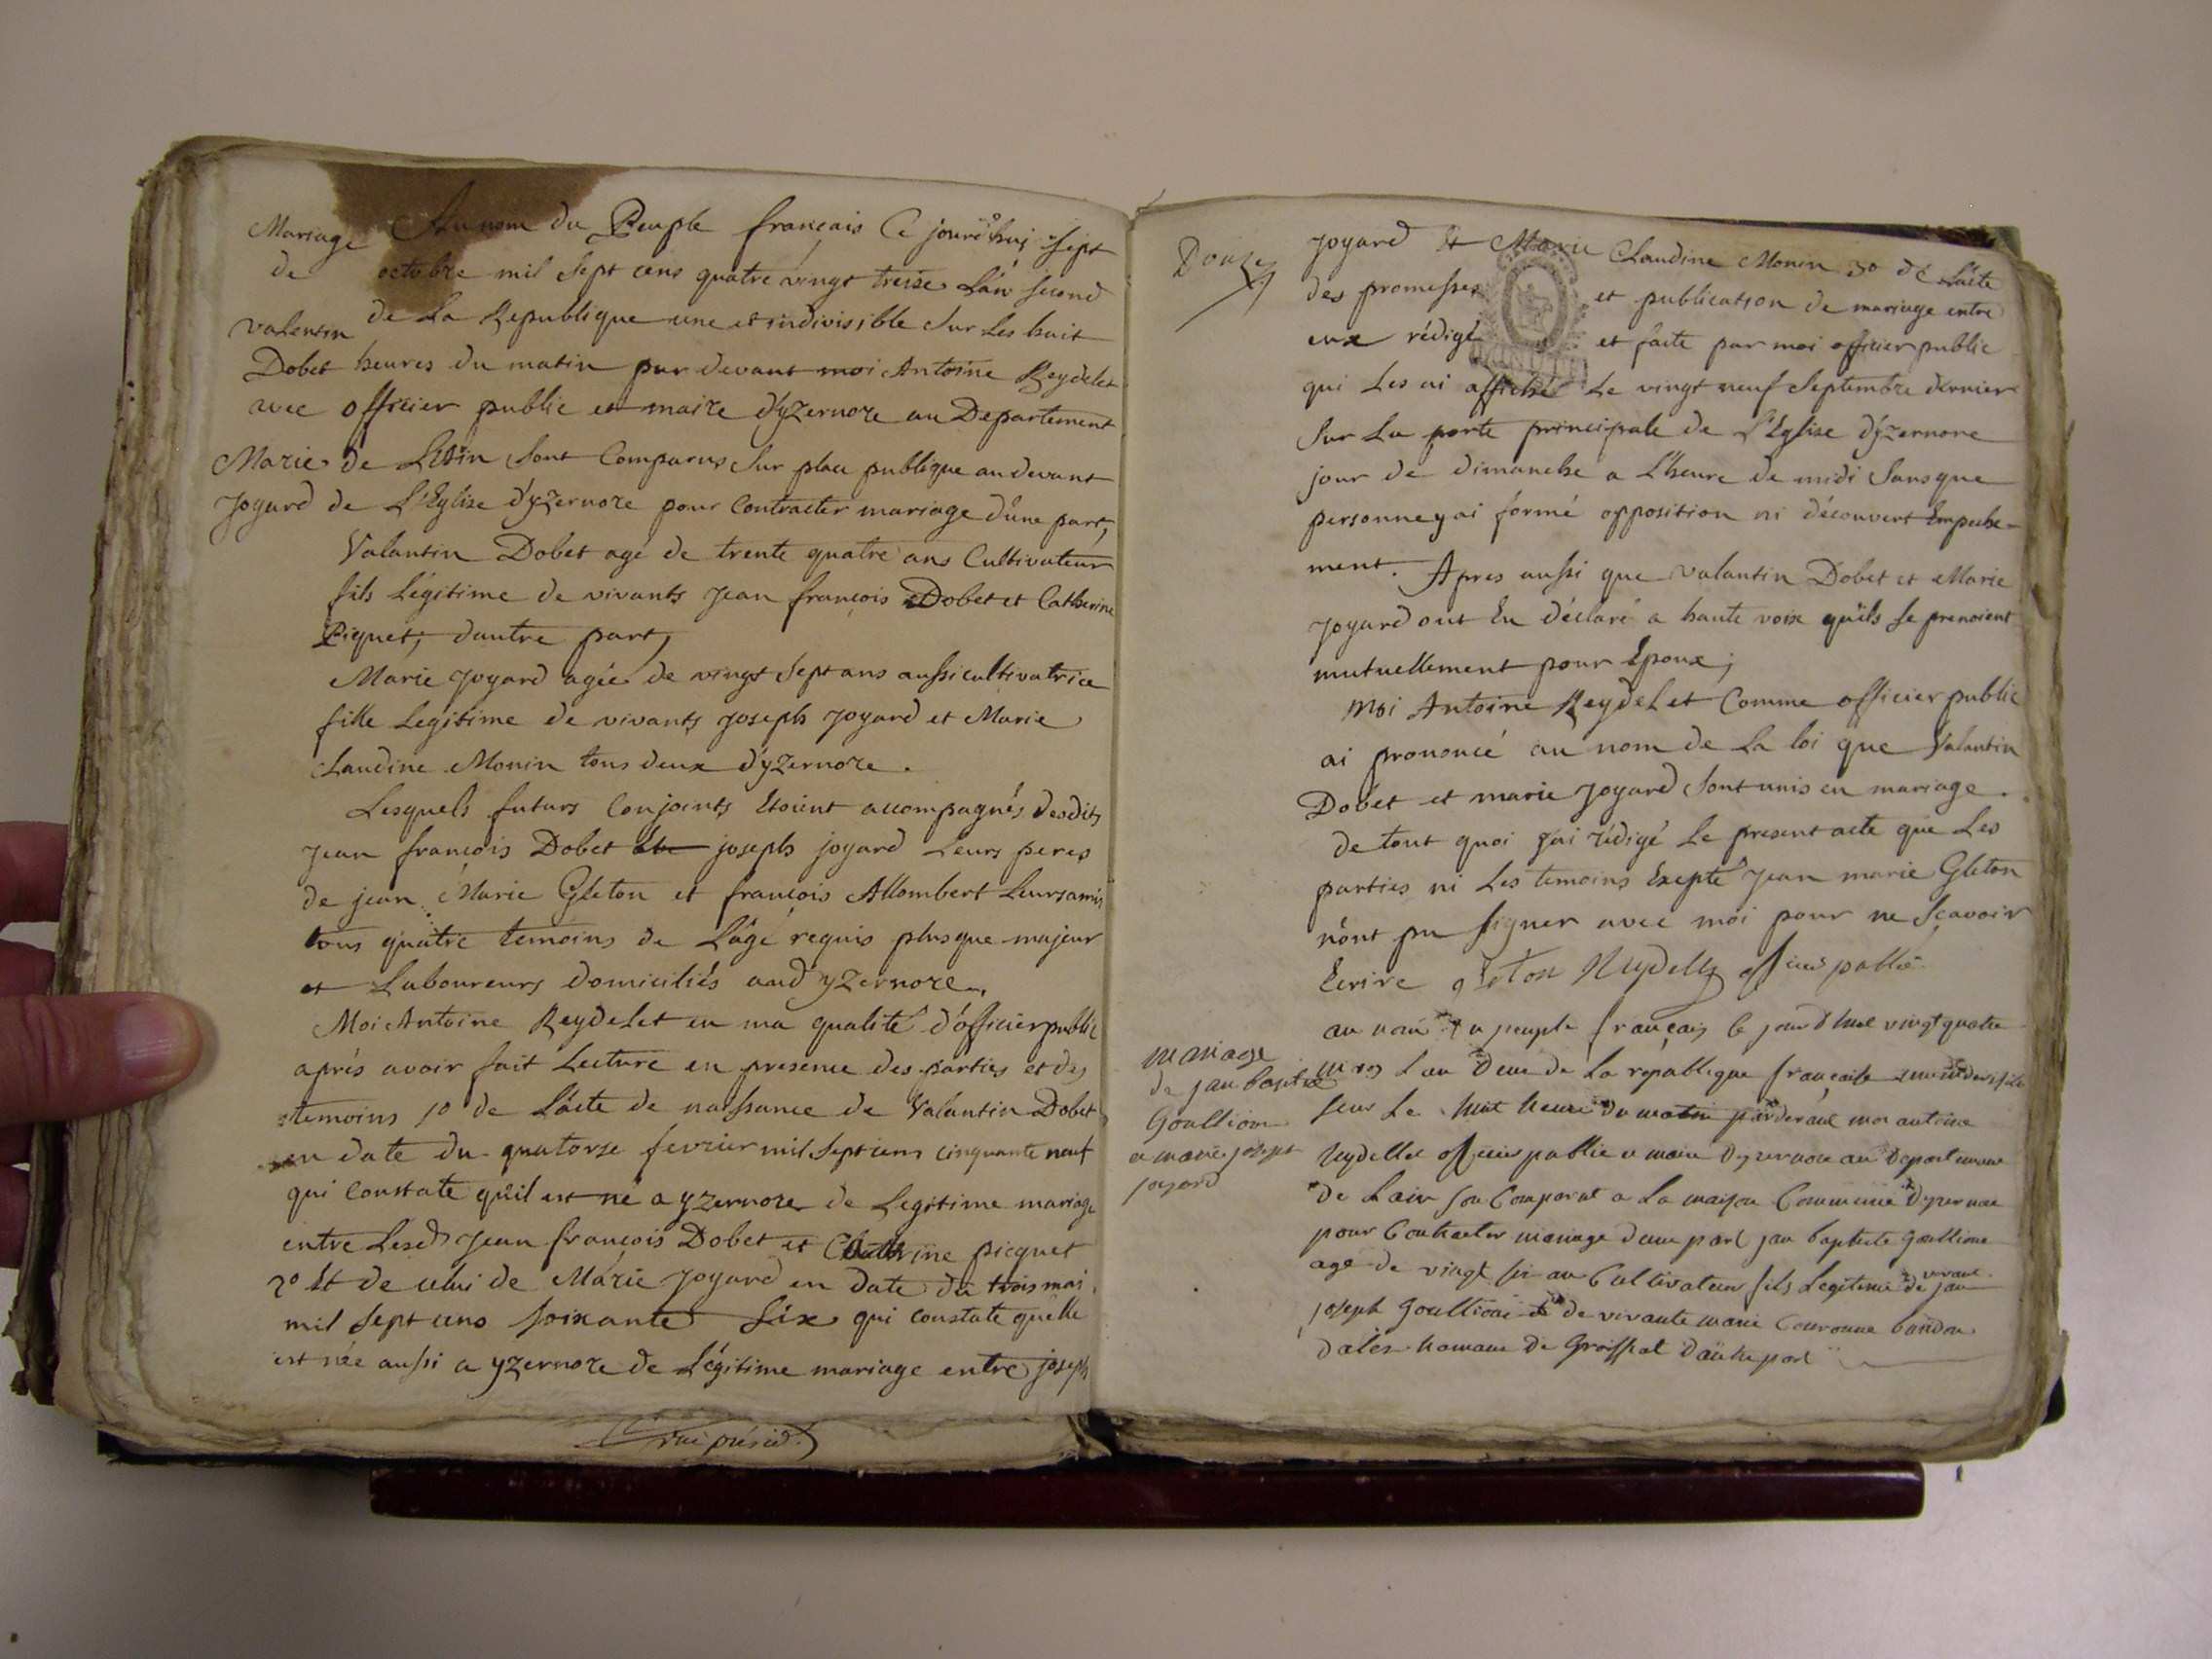 Mariage
de
valentin
Dobet
avec
Marie
Joyard
Au nom du Peuple français Ce jourd'huj sept
octobre mil sept cens quatre vingt treize L'an second
de La Republique une et indivisible sur Les huit
heures du matin par devant moi Antoine Reydelet
officier public et maire d'yzernore au Departement
de L'Ain sont Comparus sur place publique au devant
de L'Eglise d'yzernore pour Contracter mariage d'une part,
Valantin Dobet agé de trente quatre ans Cultivateur
fils Légitime de vivants Jean françois Dobet et Catherine
Piquet, dautre part,
Marie Joyard agée de vingt sept ans aussi cultivatrice
fille Legitime de vivants joseph Joyard et Marie
Claudine Monin tous deux d'yzernore.
Lesquels futurs Conjoints Etoient accompagnés desdits
Jean françois Dobet joseph joyard Leurs peres
de jean Marie Gleton et françois Allombert Leurs amis
tous quatre temoins de L'âge requis plus que majeur
et Laboureurs domiciliés aud yzernore.
Moi Antoine Reydelet en ma qualité d'officier public
aprés avoir fait Lecture en presence des parties et des
temoins 1o de L'acte de naissance de Valantin Dobet
en date du quatorse fevrier mil sept cens cinquante neuf
qui Constate qu'il est né a yzernore de Legitime mariage
entre Lesd Jean françois Dobet et Catherine picquet
2o Et de celui de Marie Joyard en date du trois mai
mil sept cens soixante six qui constate qu'elle
est née aussi a yzernore de Légitime mariage entre joseph
Douze
Joyard et Marie Claudine Monin 3o de L'acte
des promesses et publication de mariage entre
eux rédigé et faite par moi officier public
qui Les ai affiché Le vingt neuf Septembre dernier
sur La porte principale de L'Eglise d'yzernore
jour de dimanche a L'heure de midi sans que
personne y ai formé opposition ni découvert Empeche-
ment. Apres aussi que valantin Dobet et Marie
Joyard ont Eu déclaré a haute voix qu'ils se prenoient
mutuellement pour Epoux;
Moi Antoine Reydelet Comme officier public
ai prononcé au nom de La loi que Valantin
Dobet et marie Joyard sont unis en mariage.
de tout quoi j'ai rédigé Le present acte que Les
parties ni Les temoins Exepté Jean marie Gleton
n'ont pu signer avec moi pour ne Scavoir
Ecrire
mariage
de jan baptiste
Goullion
a marie josept
joyard
au nom du peuple français ce jourd'hui vingt quatre
L'an Deux de La république française
sur Le huit heure du matin par devant moi antoine
Reydellet officier public e maire Dyzernore au Departement
de Lain son Comparut a La maison Commune dyzernore
pour Contracter mariage dune part jan baptiste Goullion
age de vingt six an Cultivateur fils Legitime de vivant jan
joseph Goullion et de vivante marie
de Groissiat Dautre part